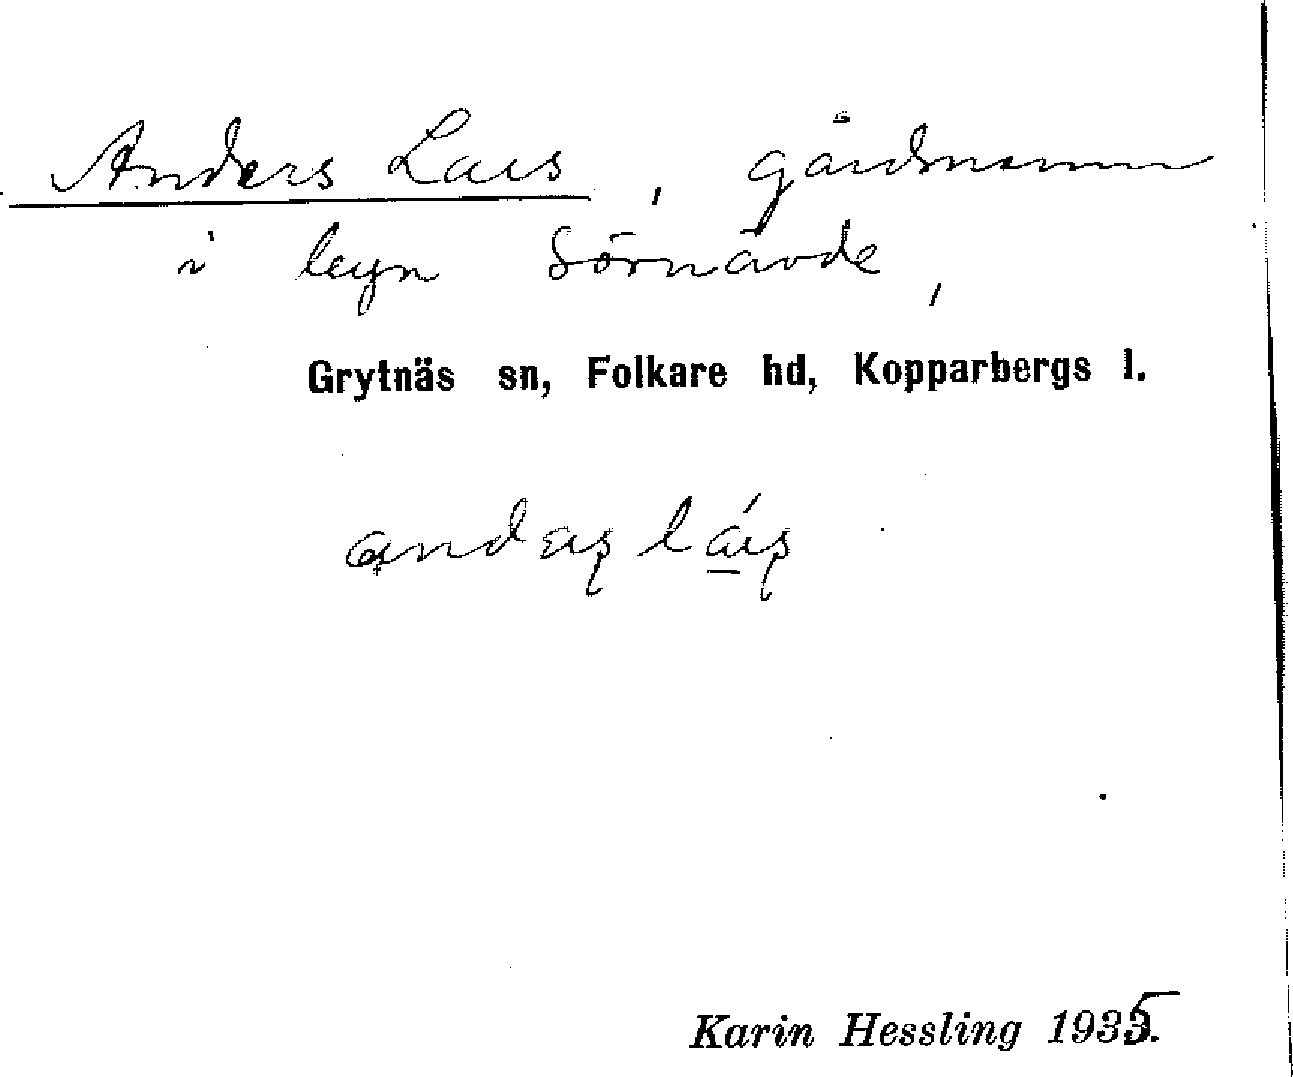 Anders Lars, gårdsnamn
i byn Sörnävde,
Grytnäs sn, Folkare hd, Kopparbergs l.
Karin Hessling 1935.